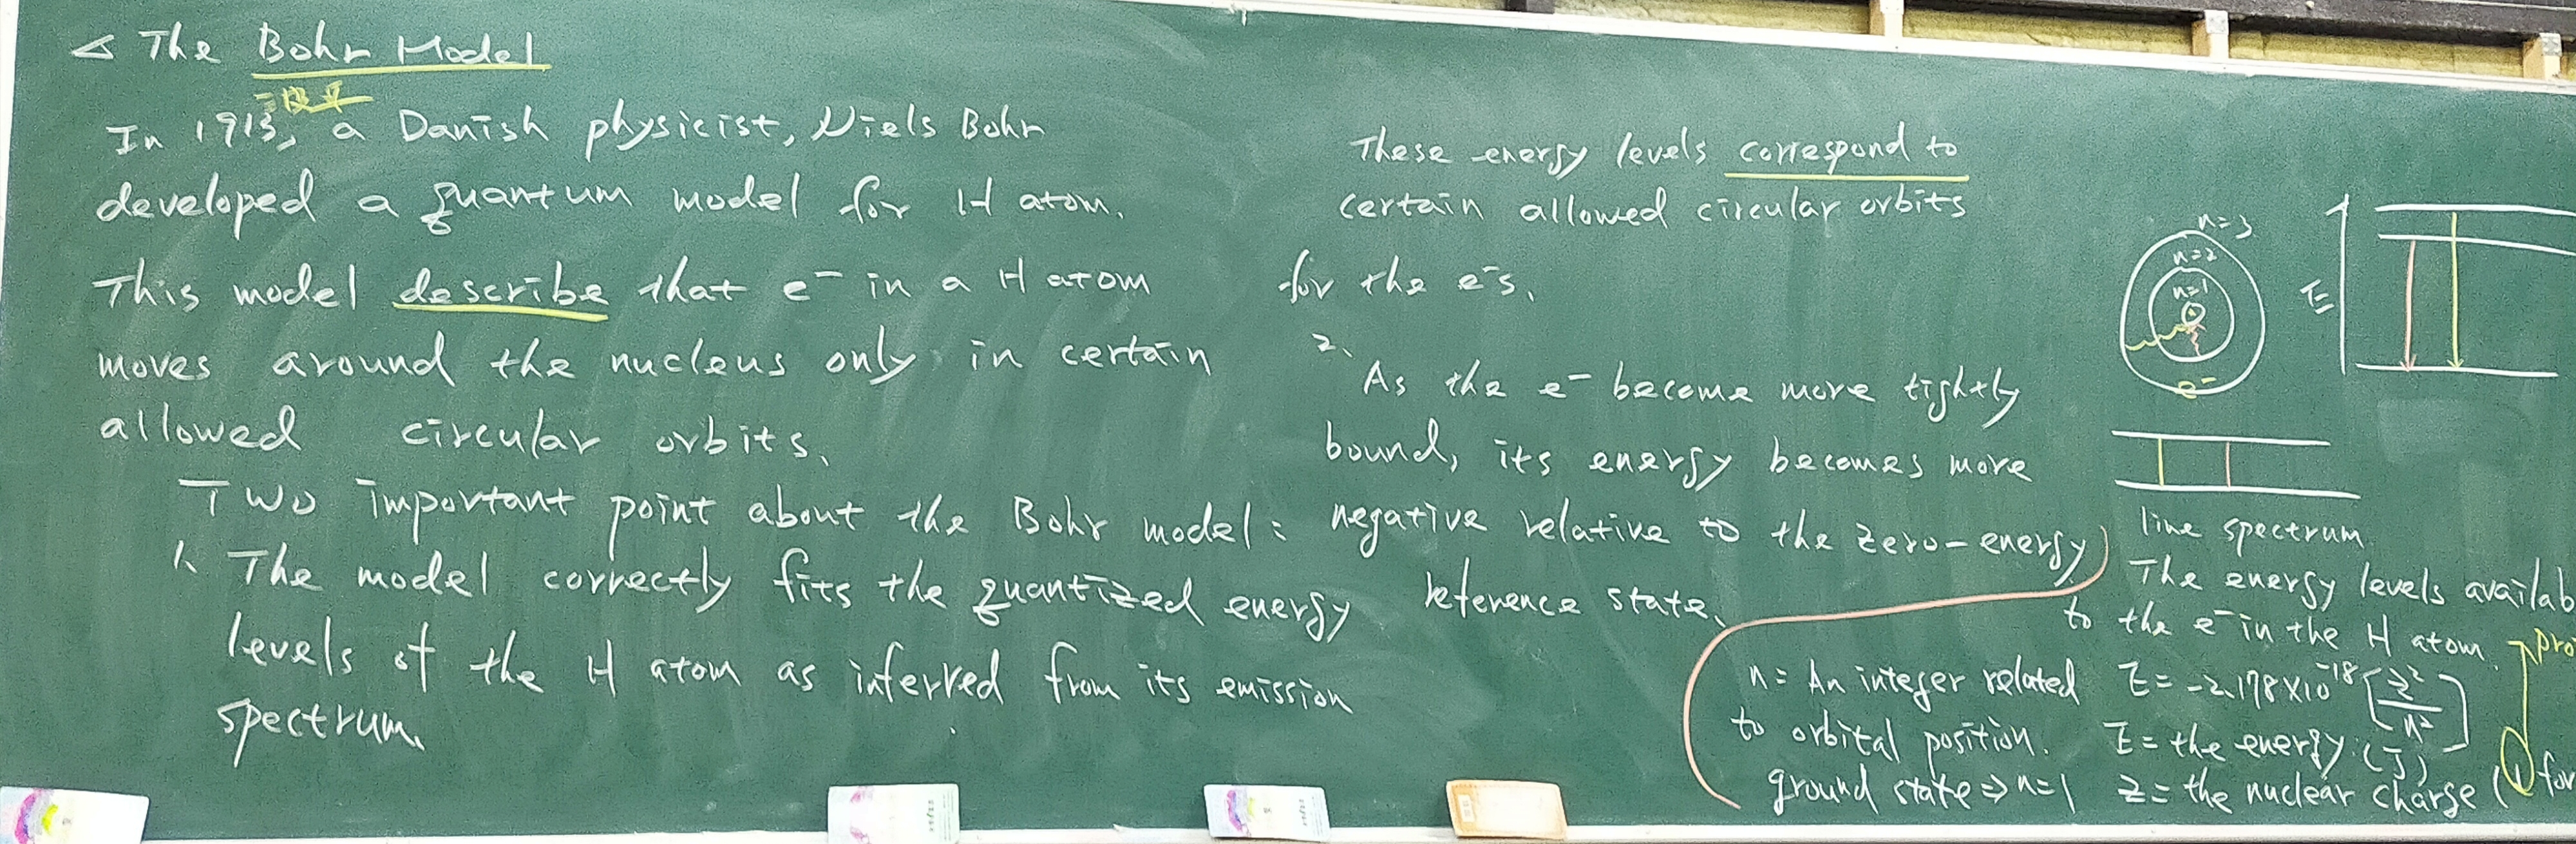 The Bohr Model
波耳
In 1913, a Danish physicist, Niels Bohr
developed a quantum model for H atom.
This model describe that e⁻ in a H atom
moves around the nucleus only in certain
allowed circular orbits.
Two important point about the Bohr model:
1. The model correctly fits the quantized energy
levels of the H atom as inferred from its emission
spectrum.
These energy levels correspond to
certain allowed circular orbits
for the e⁻s.
2.
As the e⁻ become more tightly
bound, its energy becomes more
negative relative to the zero-energy
reference state.
n=3
n=2
n=1
e⁻
E
line spectrum.
The energy levels availab
to the e⁻ in the H atom.
E = -2.178×10⁻¹⁸ [z²/n²]
E = the energy. (J)
z = the nuclear charge (1 for
pro
n = An integer related
to orbital position.
ground state ⇒ n=1